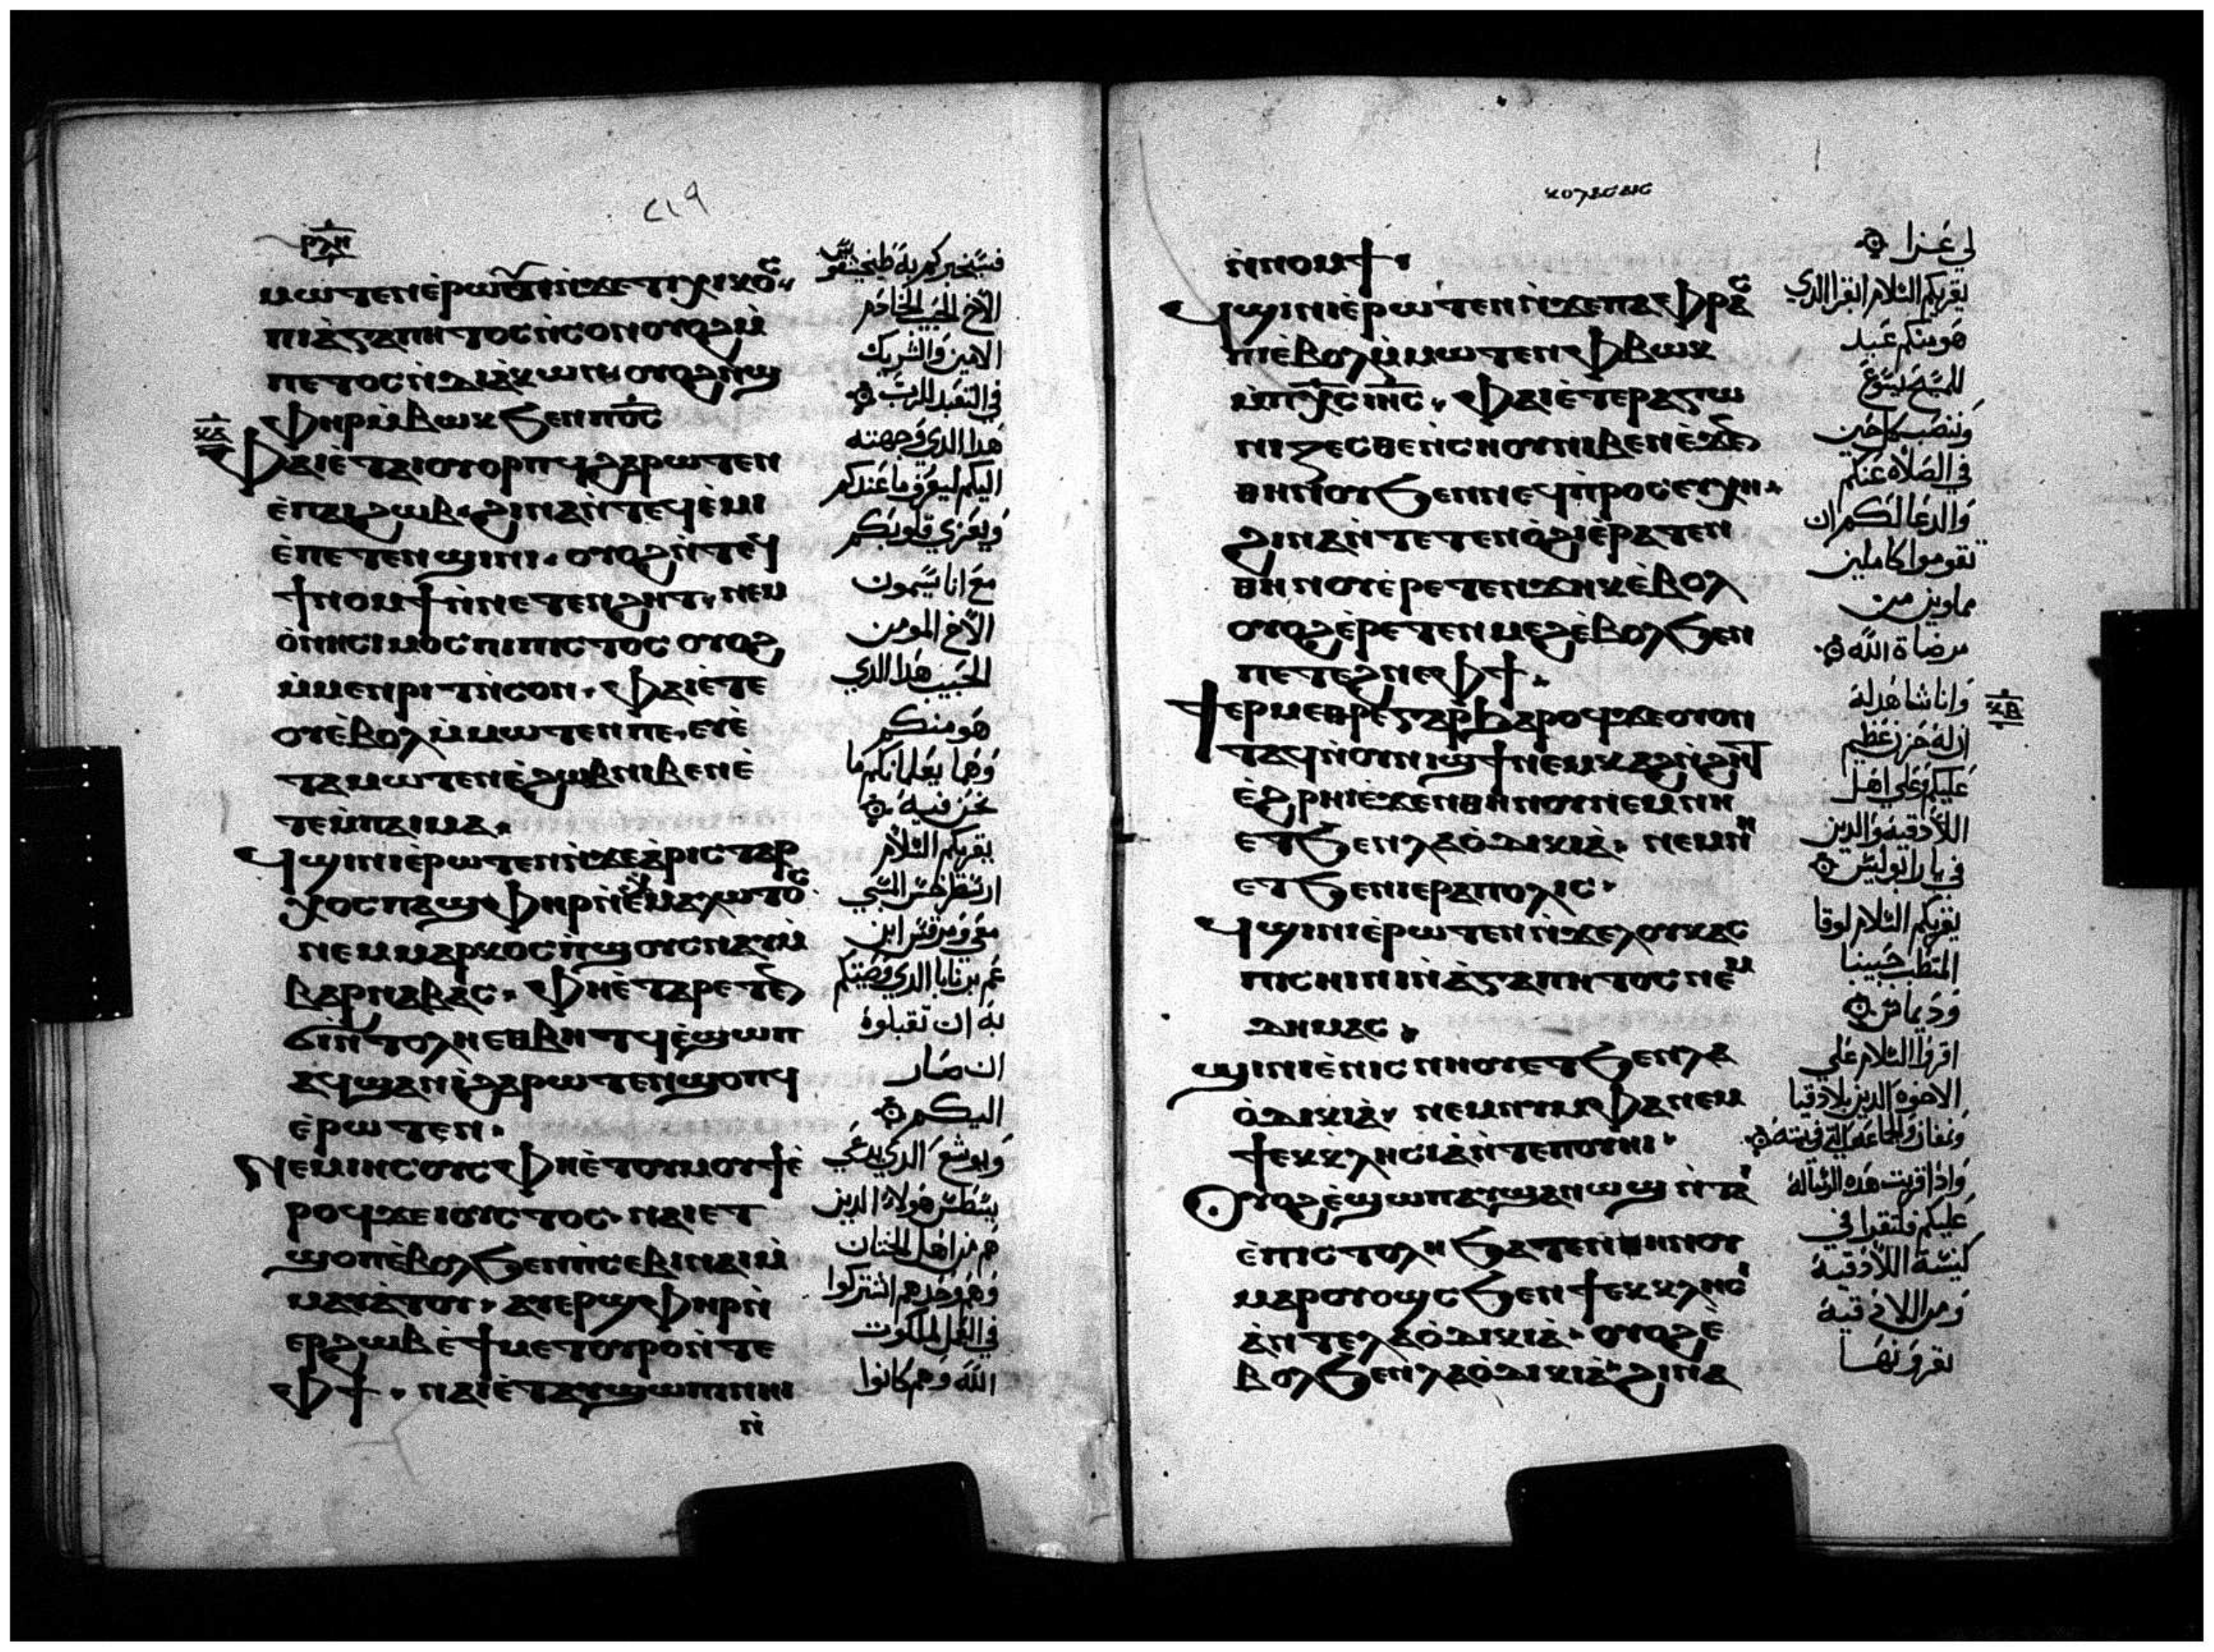 ⲣⲗⲏ
ⲙⲱⲧⲉⲛ ⲉ̀ⲣⲱⲟⲩ ⲛ̀ϫⲉ ⲧⲩⲭⲓⲕⲟⲥ
ⲡⲓⲁ̀ⲅⲁⲡⲏⲧⲟⲥ ⲛ̀ⲥⲟⲛ ⲟⲩⲟϩ ⲙ̀
ⲡⲓⲥⲧⲟⲥ ⲛ̀ⲇⲓⲁ̀ⲕⲱⲛ ⲟⲩⲟϩ ⲛ̀ϣ
ⲫⲏⲣ ⲙ̀ⲃⲱⲕ ϧⲉⲛ ⲡⲟ̅ⲥ̅
ⲫⲁⲓ ⲉ̀ⲧⲁⲓⲟⲩⲟⲣⲡϥ ϩⲁⲣⲱⲧⲉⲛ
ⲉ̀ⲡⲁⲓϩⲱⲃ ϩⲓⲛⲁ ⲛ̀ⲧⲉϥⲉ̀ⲙⲓ
ⲉ̀ⲡⲉⲧⲉⲛϣⲓⲛⲓ ⲟⲩⲟϩ ⲛ̀ⲧⲉϥ
ϯⲛⲟⲙϯ ⲛ̀ⲛⲉⲧⲉⲛϩⲏⲧ ⲛⲉⲙ
ⲟ̀ⲛⲏⲥⲓⲙⲟⲥ ⲡⲓⲡⲓⲥⲧⲟⲥ ⲟⲩⲟϩ
ⲙ̀ⲙⲉⲛⲣⲓⲧ ⲛ̀ⲥⲟⲛ ⲫⲁⲓ ⲉ̀ⲧⲉ
ⲟⲩⲉ̀ⲃⲟⲗ ⲙ̀ⲙⲱⲧⲉⲛ ⲡⲉ ⲉⲩⲉ̀
ⲧⲁⲙⲱⲧⲉⲛ ⲉ̀ϩⲱⲃ ⲛⲓⲃⲉⲛ ⲉ̀
ⲧⲉⲙ̀ⲡⲁⲓⲙⲁ
ϥϣⲓⲛⲓ ⲉ̀ⲣⲱⲧⲉⲛ ⲛ̀ϫⲉ ⲁ̀ⲣⲓⲥⲧⲁⲣ
ⲭⲟⲥ ⲡⲁϣⲫⲏⲣ ⲛ̀ⲉⲭⲙⲁⲗⲱⲧⲟⲥ
ⲛⲉⲙ ⲙⲁⲣⲕⲟⲥ ⲡ̀ϣⲟⲩⲥⲛⲁⲩ ⲙ̀
ⲃⲁⲣⲛⲁⲃⲁⲥ ⲫⲏ ⲉ̀ⲧⲁⲣⲉⲧⲉⲛ
ϭⲓⲛ̀ⲧⲟⲗⲏ ⲉⲑⲃⲏⲧϥ ⲉ̀ϣⲱⲡ
ⲁϥϣⲁⲛⲓ̀ ϩⲁⲣⲱⲧⲉⲛ ϣⲟⲡϥ
ⲉ̀ⲣⲱⲧⲉⲛ
ⲛⲉⲙ ⲓⲏⲥⲟⲩⲥ ⲫⲏ ⲉ̀ⲧⲟⲩⲙⲟⲩϯ ⲉ̀
ⲣⲟϥ ϫⲉ ⲓⲟⲩⲥⲧⲟⲥ ⲛⲁⲓ ⲉⲧ
ϣⲟⲡ ⲉ̀ⲃⲟⲗ ϧⲉⲛ ⲡ̀ⲥⲉⲃⲓ ⲛⲁⲓ ⲙ̀
ⲙⲁⲩⲁ̀ⲧⲟⲩ ⲁⲩⲉⲣϣⲫⲏⲣ ⲛ̀
ⲉⲣϩⲱⲃ ⲉ̀ϯⲙⲉⲧⲟⲩⲣⲟ ⲛ̀ⲧⲉ
ⲫϯ ⲛⲁⲓ ⲉ̀ⲧⲁⲩϣⲱⲡⲓ ⲛⲏⲓ
ⲛ̀
ⲕⲁ
٢١٩
فسيخبركم به طيخيقوس
الاخ الحبيب الخادم
الامين والشريك
في التعبد للرب
هذا الذي وجهته
اليكم ليعرف ما عندكم
ويعزي قلوبكم
مع اناسيمون
الاخ المومن
الحبيب هذا الذي
هو منكم
وهما يعلمانكم ما
نحن فيه
يقريكم السلام
ارسطرخس السبي
معي ومرقس ابن
عم برنابا الذي وصيتكم
به ان تقبلوه
ان صار
اليكم
ويوشع الذي يدعي
يسطس هولاء الذين
هم من اهل الختان
وهم وحدهم اشتركوا
في العمل لملكوت
الله وهم كانوا
ⲕⲟⲗⲁⲥⲁⲓⲥ
ⲛ̀ⲛⲟⲙϯ
ϥϣⲓⲛⲓ ⲉ̀ⲣⲱⲧⲉⲛ ⲛ̀ϫⲉ ⲉⲡⲁⲫⲣⲁⲥ
ⲡⲓⲉ̀ⲃⲟⲗ ⲙ̀ⲙⲱⲧⲉⲛ ⲫⲃⲱⲕ
ⲙ̀ⲡⲭ̅ⲥ̅ ⲓⲏ̅ⲥ̅ ⲫⲁⲓ ⲉ̀ⲧⲉⲣⲁⲅⲱ
ⲛⲓⲍⲉⲥⲑⲉ ⲛ̀ⲥⲛⲟⲩ ⲛⲓⲃⲉⲛ ⲉ̀ϫⲉⲛ
ⲑⲏⲛⲟⲩ ϧⲉⲛ ⲛⲉϥⲡ̀ⲣⲟⲥⲉⲩⲭⲏ
ϩⲓⲛⲁ ⲛ̀ⲧⲉⲧⲉⲛⲟ̀ϩⲓ ⲉ̀ⲣⲁⲧⲉⲛ
ⲑⲏⲛⲟⲩ ⲉ̀ⲣⲉⲧⲉⲛϫⲏⲕ ⲉ̀ⲃⲟⲗ
ⲟⲩⲟϩ ⲉ̀ⲣⲉⲧⲉⲛⲙⲉϩ ⲉ̀ⲃⲟⲗ ϧⲉⲛ
ⲡⲉⲧⲉϩⲛⲉ ⲫϯ
ϯⲉⲣⲙⲉⲑⲣⲉ ⲅⲁⲣ ϧⲁⲣⲟϥ ϫⲉ ⲟⲩⲟⲛ
ⲧⲁϥ ⲛ̀ⲟⲩⲛⲓϣϯ ⲛ̀ⲉⲙⲕⲁϩ ⲛ̀ϩⲏⲧ
ⲉ̀ϩⲣⲏⲓ ⲉ̀ϫⲉⲛ ⲑⲏⲛⲟⲩ ⲛⲉⲙ ⲛⲏ
ⲉⲧϧⲉⲛ ⲗⲁⲟ̀ⲇⲓⲕⲓⲁ̀ ⲛⲉⲙ ⲛⲏ
ⲉⲧϧⲉⲛ ⲓⲉⲣⲁⲡⲟⲗⲓⲥ
ϥϣⲓⲛⲓ ⲉ̀ⲣⲱⲧⲉⲛ ⲛ̀ϫⲉ ⲗⲟⲩⲕⲁⲥ
ⲡⲓⲥⲏⲓⲛⲓ ⲛ̀ⲁ̀ⲅⲁⲡⲏⲧⲟⲥ ⲛⲉⲙ
ⲇⲏⲙⲁⲥ
ϣⲓⲛⲓ ⲉ̀ⲛⲓⲥⲛⲏⲟⲩ ⲉⲧϧⲉⲛ ⲗⲁ
ⲟ̀ⲇⲓⲕⲓⲁ̀ ⲛⲉⲙ ⲛⲩⲙⲫⲁ ⲛⲉⲙ
ϯⲉⲕⲕⲗⲏⲥⲓⲁ ⲛ̀ⲧⲉ ⲡⲟⲩⲏⲓ
ⲟⲩⲟϩ ⲉ̀ϣⲱⲡ ⲁⲩϣⲁⲛⲱϣ ⲛ̀ⲧⲁⲓ
ⲉ̀ⲡⲓⲥⲧⲟⲗⲏ ϧⲁⲧⲉⲛ ⲑⲏⲛⲟⲩ
ⲙⲁⲣⲟⲩⲟϣⲥ ϧⲉⲛ ϯⲉⲕⲕⲗⲏⲥⲓ
ⲁ ⲛ̀ⲧⲉ ⲗⲁⲟ̀ⲇⲓⲕⲓⲁ̀ ⲟⲩⲟϩ ⲉ̀
ⲃⲟⲗ ϧⲉⲛ ⲗⲁⲟ̀ⲇⲓⲕⲓⲁ̀ ϩⲓⲛⲁ
لي عزا
يقريكم السلام ابفرا الذي
هو منكم عبد
للمسيح يسوع
وينصب كل حين
في الصلاه عنكم
والدعا لكم ان
تقوموا كاملين
مملوين من
مرضاة الله
وانا شاهد له
ان له حزن عظيم
عليكم وعلي اهل
اللاذقيه والذين
في يارابوليس
يقريكم السلام لوقا
المتطبب حبيبنا
وديماس
اقروا السلام علي
الاخوه الذين بلاذقيا
ونمفان والجماعه التي في بيته
واذا قريت هذه الرساله
عليكم فلتقرا في
كنيسة اللاذقيه
ومن اللاذقيه
تقرونها
ⲕⲃ